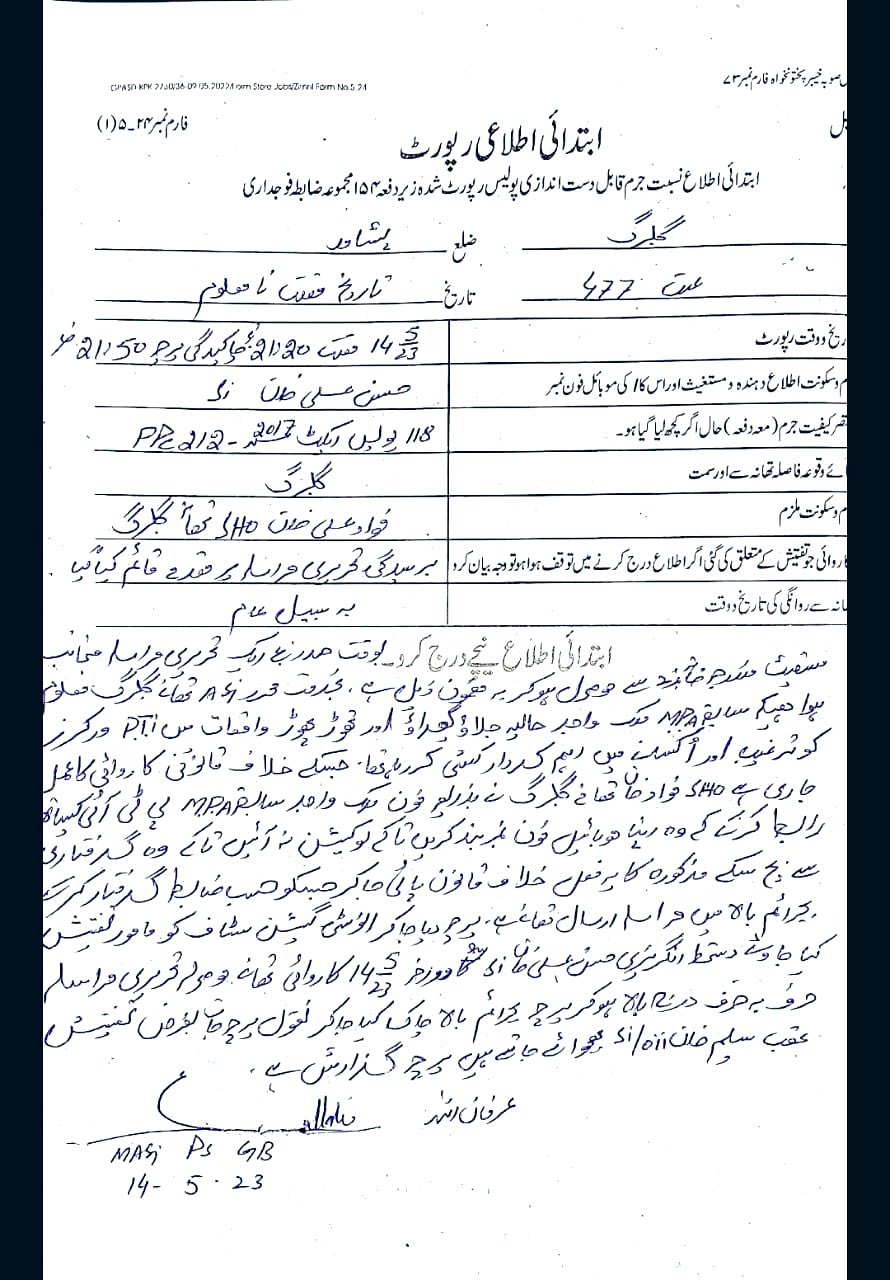 GP&SD KPK 2730/36-09.05.2022/Form Store Jobs/Zimni Form No.5.24
صوبہ خیبر پختونخواہ فارم نمبر ۷۳
فارم نمبر ۲۴-۵ (۱)
ابتدائی اطلاعی رپورٹ
ابتدائی اطلاع نسبت جرم قابل دست اندازی پولیس رپورٹ شدہ زیر دفعہ ۱۵۴ مجموعہ ضابطہ فوجداری
گلبرگ ضلع پشاور
علت 477 تاریخ تاریخ وقت نا معلوم
وقت رپورٹ 14 5/23 وقت 21:20 بجے چاکیدگی پرچہ 21:50
وسکونت اطلاع دہندہ و مستغیث اور اس کا / کی موبائل فون نمبر حسن علی خان Si
کیفیت جرم (معہ دفعہ) حال اگر کچھ لیا گیا ہو۔ 118 پولیس ایکٹ 2017 - 212 PPC
وقوعہ فاصلہ تھانہ سے اور سمت گلبرگ
وسکونت ملزم فواد علی خان SHO تھانہ گلبرگ
جو تفتیش کے متعلق کی گئی اگر اطلاع درج کرنے میں توقف ہوا ہو تو وجہ بیان کرو برسیدگی تحریری مراسلہ پر مقدمہ قائم کیا گیا
سے روانگی کی تاریخ ووقت بہ سبیل عام
ابتدائی اطلاع نیچے درج کرو۔ بوقت صدر ایک تحریری مراسلہ منجانب
مستغیث مندرجہ سے موصول ہو کر بہ مضمون ذیل ہے۔ بخدمت محرر ASI تھانہ گلبرگ معلوم
ہوا ہے کہ سابقہ MPA ملک واجد حالیہ جلاؤ گھیراؤ اور توڑ پھوڑ واقعات میں PTI ورکرز
کو ترغیب اور میں اہم کردار کشی کر رہا تھا۔ جسکے خلاف قانونی کاروائی کا عمل
جاری ہے SHO فواد خان تھانہ گلبرگ نے بذریعہ فون ملک واجد سابقہ MPA پی ٹی آئی کیساتھ
رابطہ کرکے کہ وہ اپنا موبائیل فون نمبر بند کریں تاکہ لوکیشن نہ آئیں تاکہ وہ گرفتاری
سے بچ سکے مذکورہ کا یہ فعل خلاف قانون پائی جا کر جسکو حسب ضابطہ گرفتار کرکے
بجرائم بالا میں مراسلہ ارسال تھانہ ہے۔ پرچہ دیا جا کر انوسٹی گیشن سٹاف کو مامور تفتیش
کیا جاوے دستخط انگریزی حسن علی خان Si مورخہ 14 5/23 کاروائی تھانہ وصولہ تحریری مراسلہ
حرف بہ حرف درج بالا ہو کر پرچہ بجرائم بالا چاک کیا جا کر نقول پرچہ جات بغرض تفتیش
عقب سلیم خان Si/oii بھجوائے جاتے ہیں پرچہ گذارش ہے۔
عرفان اللہ
MASi PS GB
14- 5 . 23